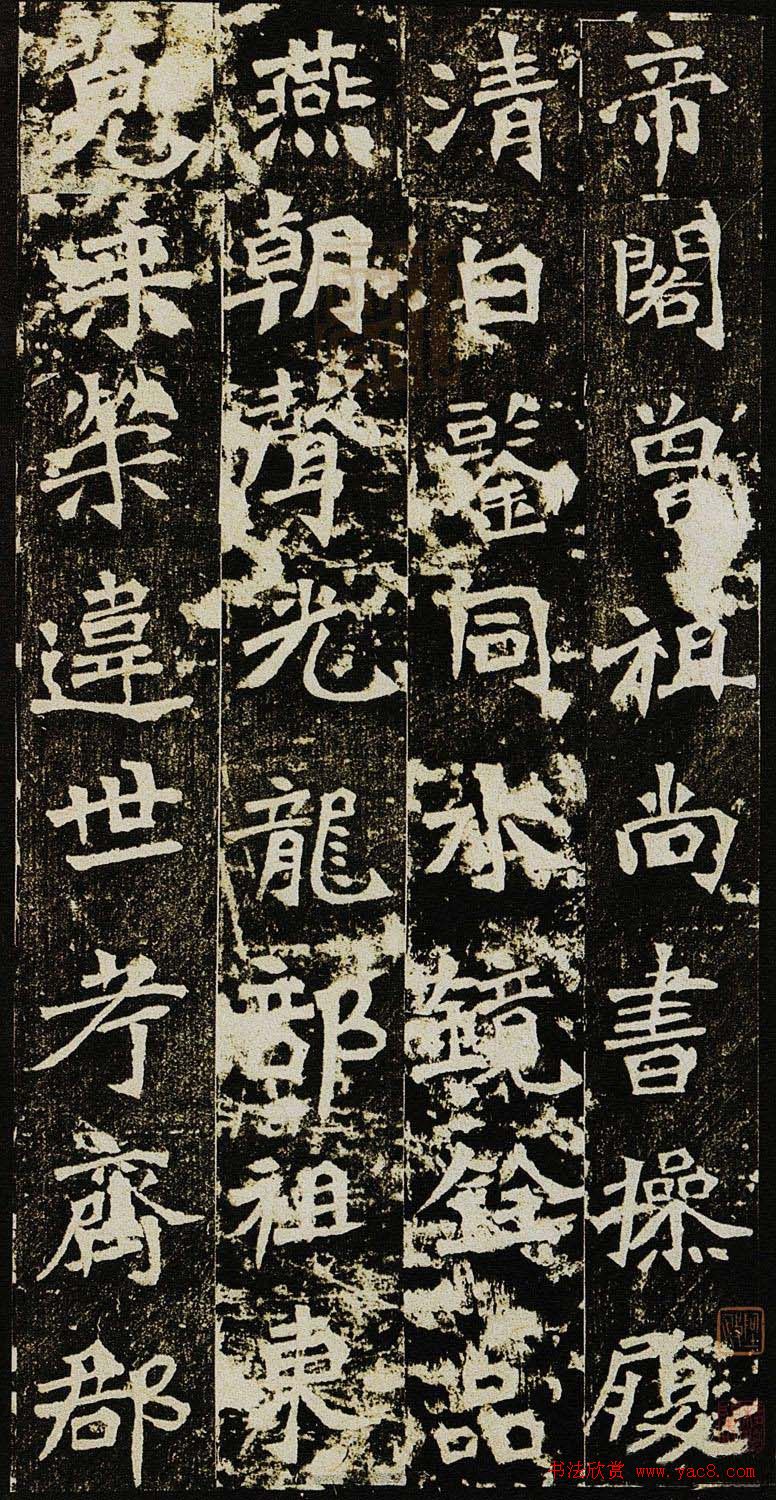 帝閣曾祖尚書操履
清白鑒同水鏡銓品
燕朝聲光龍部祖東
莞乘榮違世考齊郡
书法欣赏 www.yac8.com